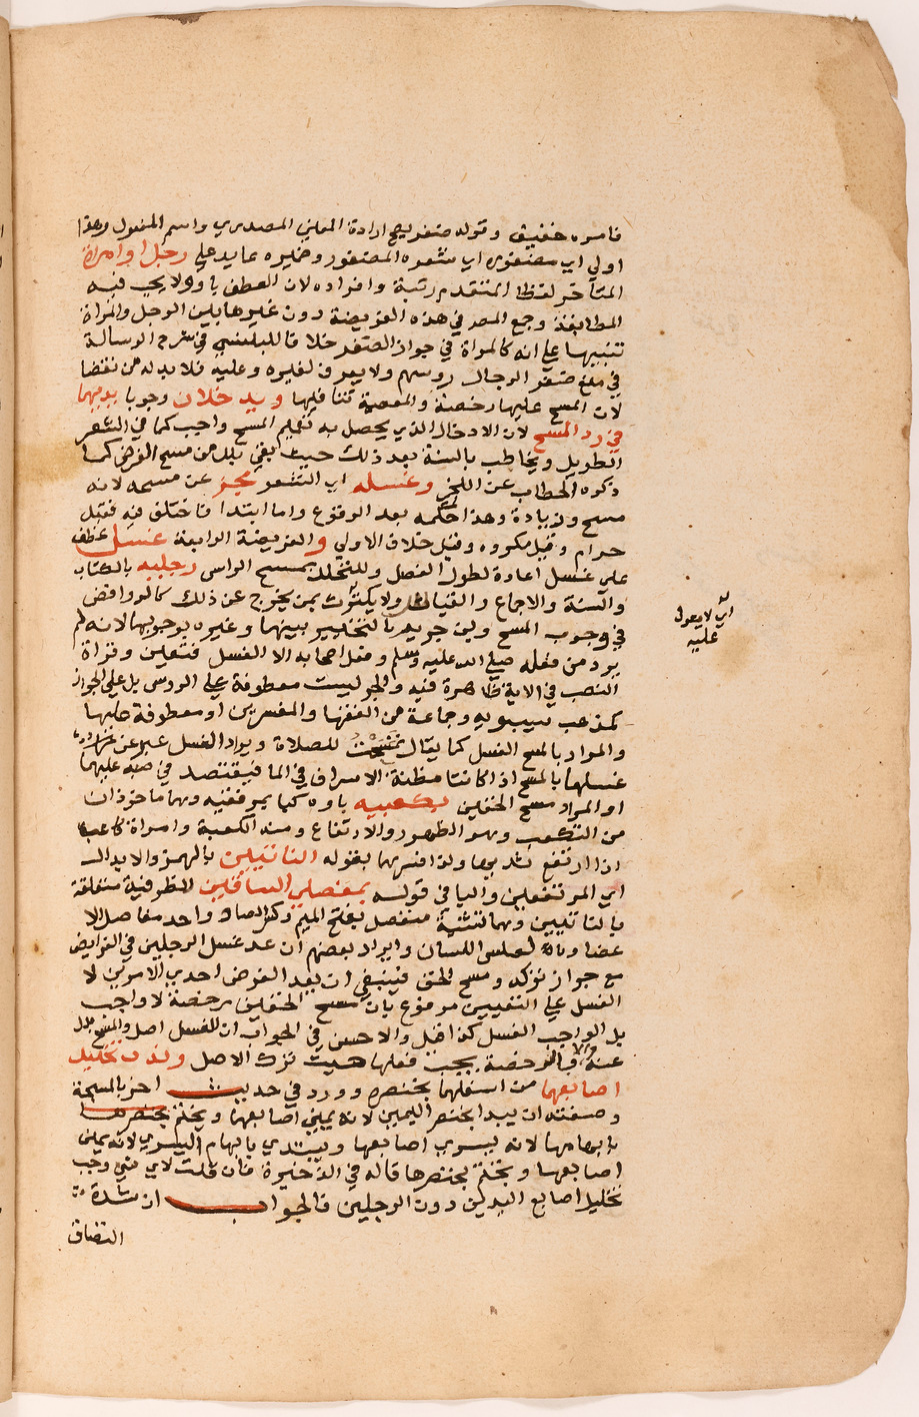 فامره خفيف وقوله ضفر يصح ارادة المعنى المصدري واسم المفعول وهذا
اولي اي مضفوره اي شعره المضفور وضميره عايد علي رجل او امراة
المتاخر لفظا المتقدم رتبة وافراده لان العطف باو ولا يجب فيه
المطابقة وجمع المص في هذه الفريضة دون غيرها بين الرجل والمراة
تنبيها علي انه كالمراة في جواز الضفر خلافا للبلنسي في شرح الرسالة
في منع ضفر الرجال روسهم ولا يعرف لغيره وعليه فلا بد له من نقضها
لان المسح عليها رخصة والمعصية تنافيها ويدخلان وجوبا يديهما
في رد المسح لان الادخال الذي يحصل به تعميم المسح واجب كما في الشعر
الطويل ويخاطب بالسنة بعد ذلك حيث بقي بلل من مسح الفرض كما
ذكره الحطاب عن اللخمي وغسله اي الشعر مجز عن مسحه لانه
مسح وزيادة وهذا حكمه بعد الوقوع واما ابتدا فاختلف فيه فقيل
حرام وقيل مكروه وقيل خلاف الاولي والفريضة الرابعة غسل عطف
علي غسل اعاده لطول الفصل وللتخلل بمسح الراس رجليه بالكتاب
والسنة والاجماع والقياس ولا يكترث بمن يخرج عن ذلك كالروافض
في وجوب المسح وابن جرير بالتخيير بينهما وغيره بوجوبهما لانه لم
يرد من فعله صلي الله عليه وسلم وفعل اصحابه الا الغسل فتعين وقراة
النصب في الاية ظاهرة فيه والجر ليست معطوفة علي الروس بل علي الجوار
كمذهب سيبويه وجماعة من الفقها والمفسرين او معطوفة عليها
والمراد بالمسح الغسل كما يقال تمسحت للصلاة ويراد الغسل عبر عن
غسلها بالمسح اذ كانتا مظنة الاسراف في الما فيقتصد في صبه عليهما
او المراد مسح الخفين بكعبيه باوه كما بمرفقيه وهما ماخوذان
من التكعب وهو الظهور والارتفاع ومنه الكعبة وامراة كاعب
اذا ارتفع ثديها ولذا فسرهما بقوله الناتيين بالهمز والابدال
اي المرتفعين واليا في قوله بمفصلي الساقين للظرفية متعلقة
بالناتيين وهما تثنية مفصل بفتح الميم وكسر الصاد واحد مفاصل الا
عضا وبالعكس اللسان وايراد بعضهم ان عد غسل الرجلين في الفرايض
مع جواز تركه ومسح الخف فينبغي ان يعد الفرض احدي الامرين لا
الغسل علي التعيين مرفوع بان مسح الخفين رخصة لا واجب
بل الواجب الغسل كذا قيل والاحسن في الجواب ان الغسل اصل والمسح بدل
عنه والرخصة يجب فعلها حيث ترك الاصل وندب تخليل
اصابعهما من اسفلهما بخنصره وورد في حديث اخر بالمسبحة
وصفته ان يبدا بخنصر اليمين لانه يمين اصابعها ويختم
بابهامها لانه يسري اصابعها ويبتدي بابهام اليسري لانه يمين
اصابعها ويختم بخنصرها قاله في الذخيرة فان قلت لاي شي وجب
تخليل اصابع اليدين دون الرجلين فالجواب ان شدة
التصاق
اي لا يعول
عليه